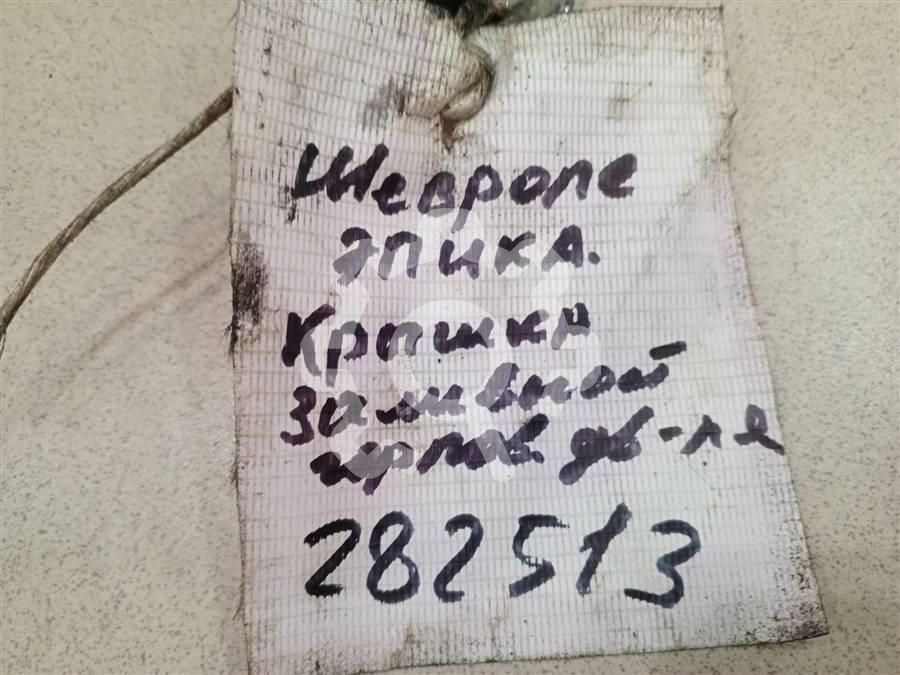 Шевроле
эпика.
Крышка
заливной
горлов. дв-ля
282513